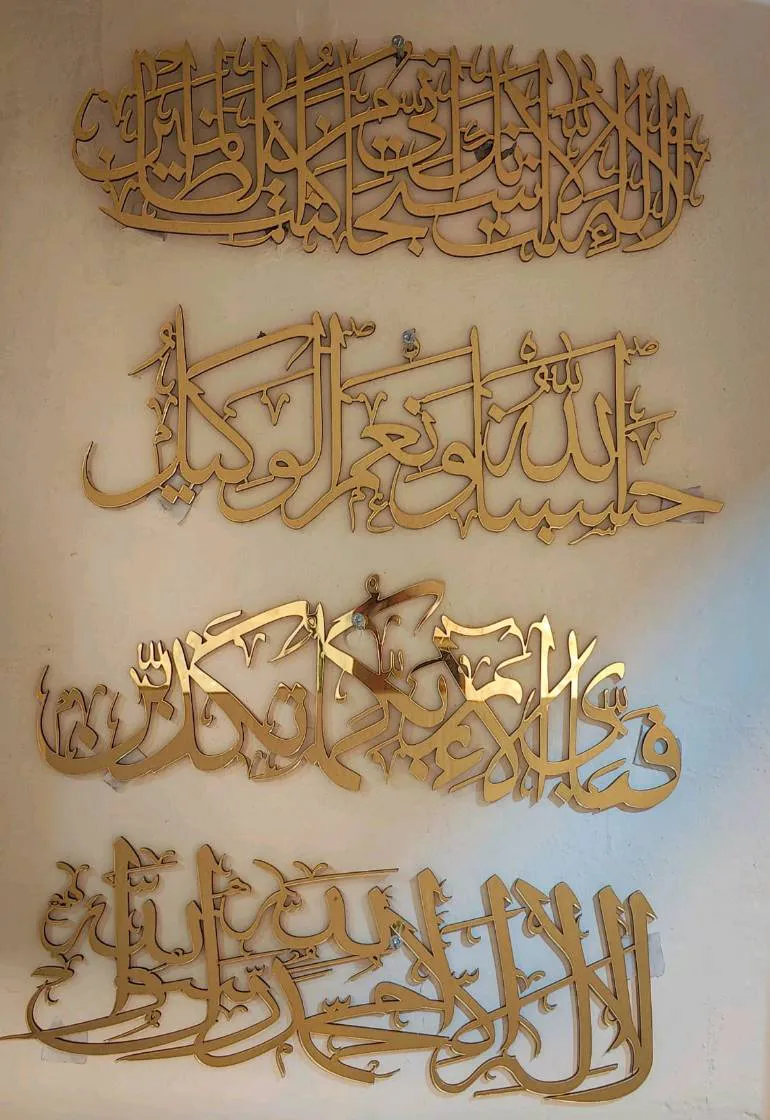 لا إله إلا أنت سبحانك إني كنت من الظالمين
حسبنا الله ونعم الوكيل
فبأي آلاء ربكما تكذبان
لا إله إلا الله محمد رسول الله